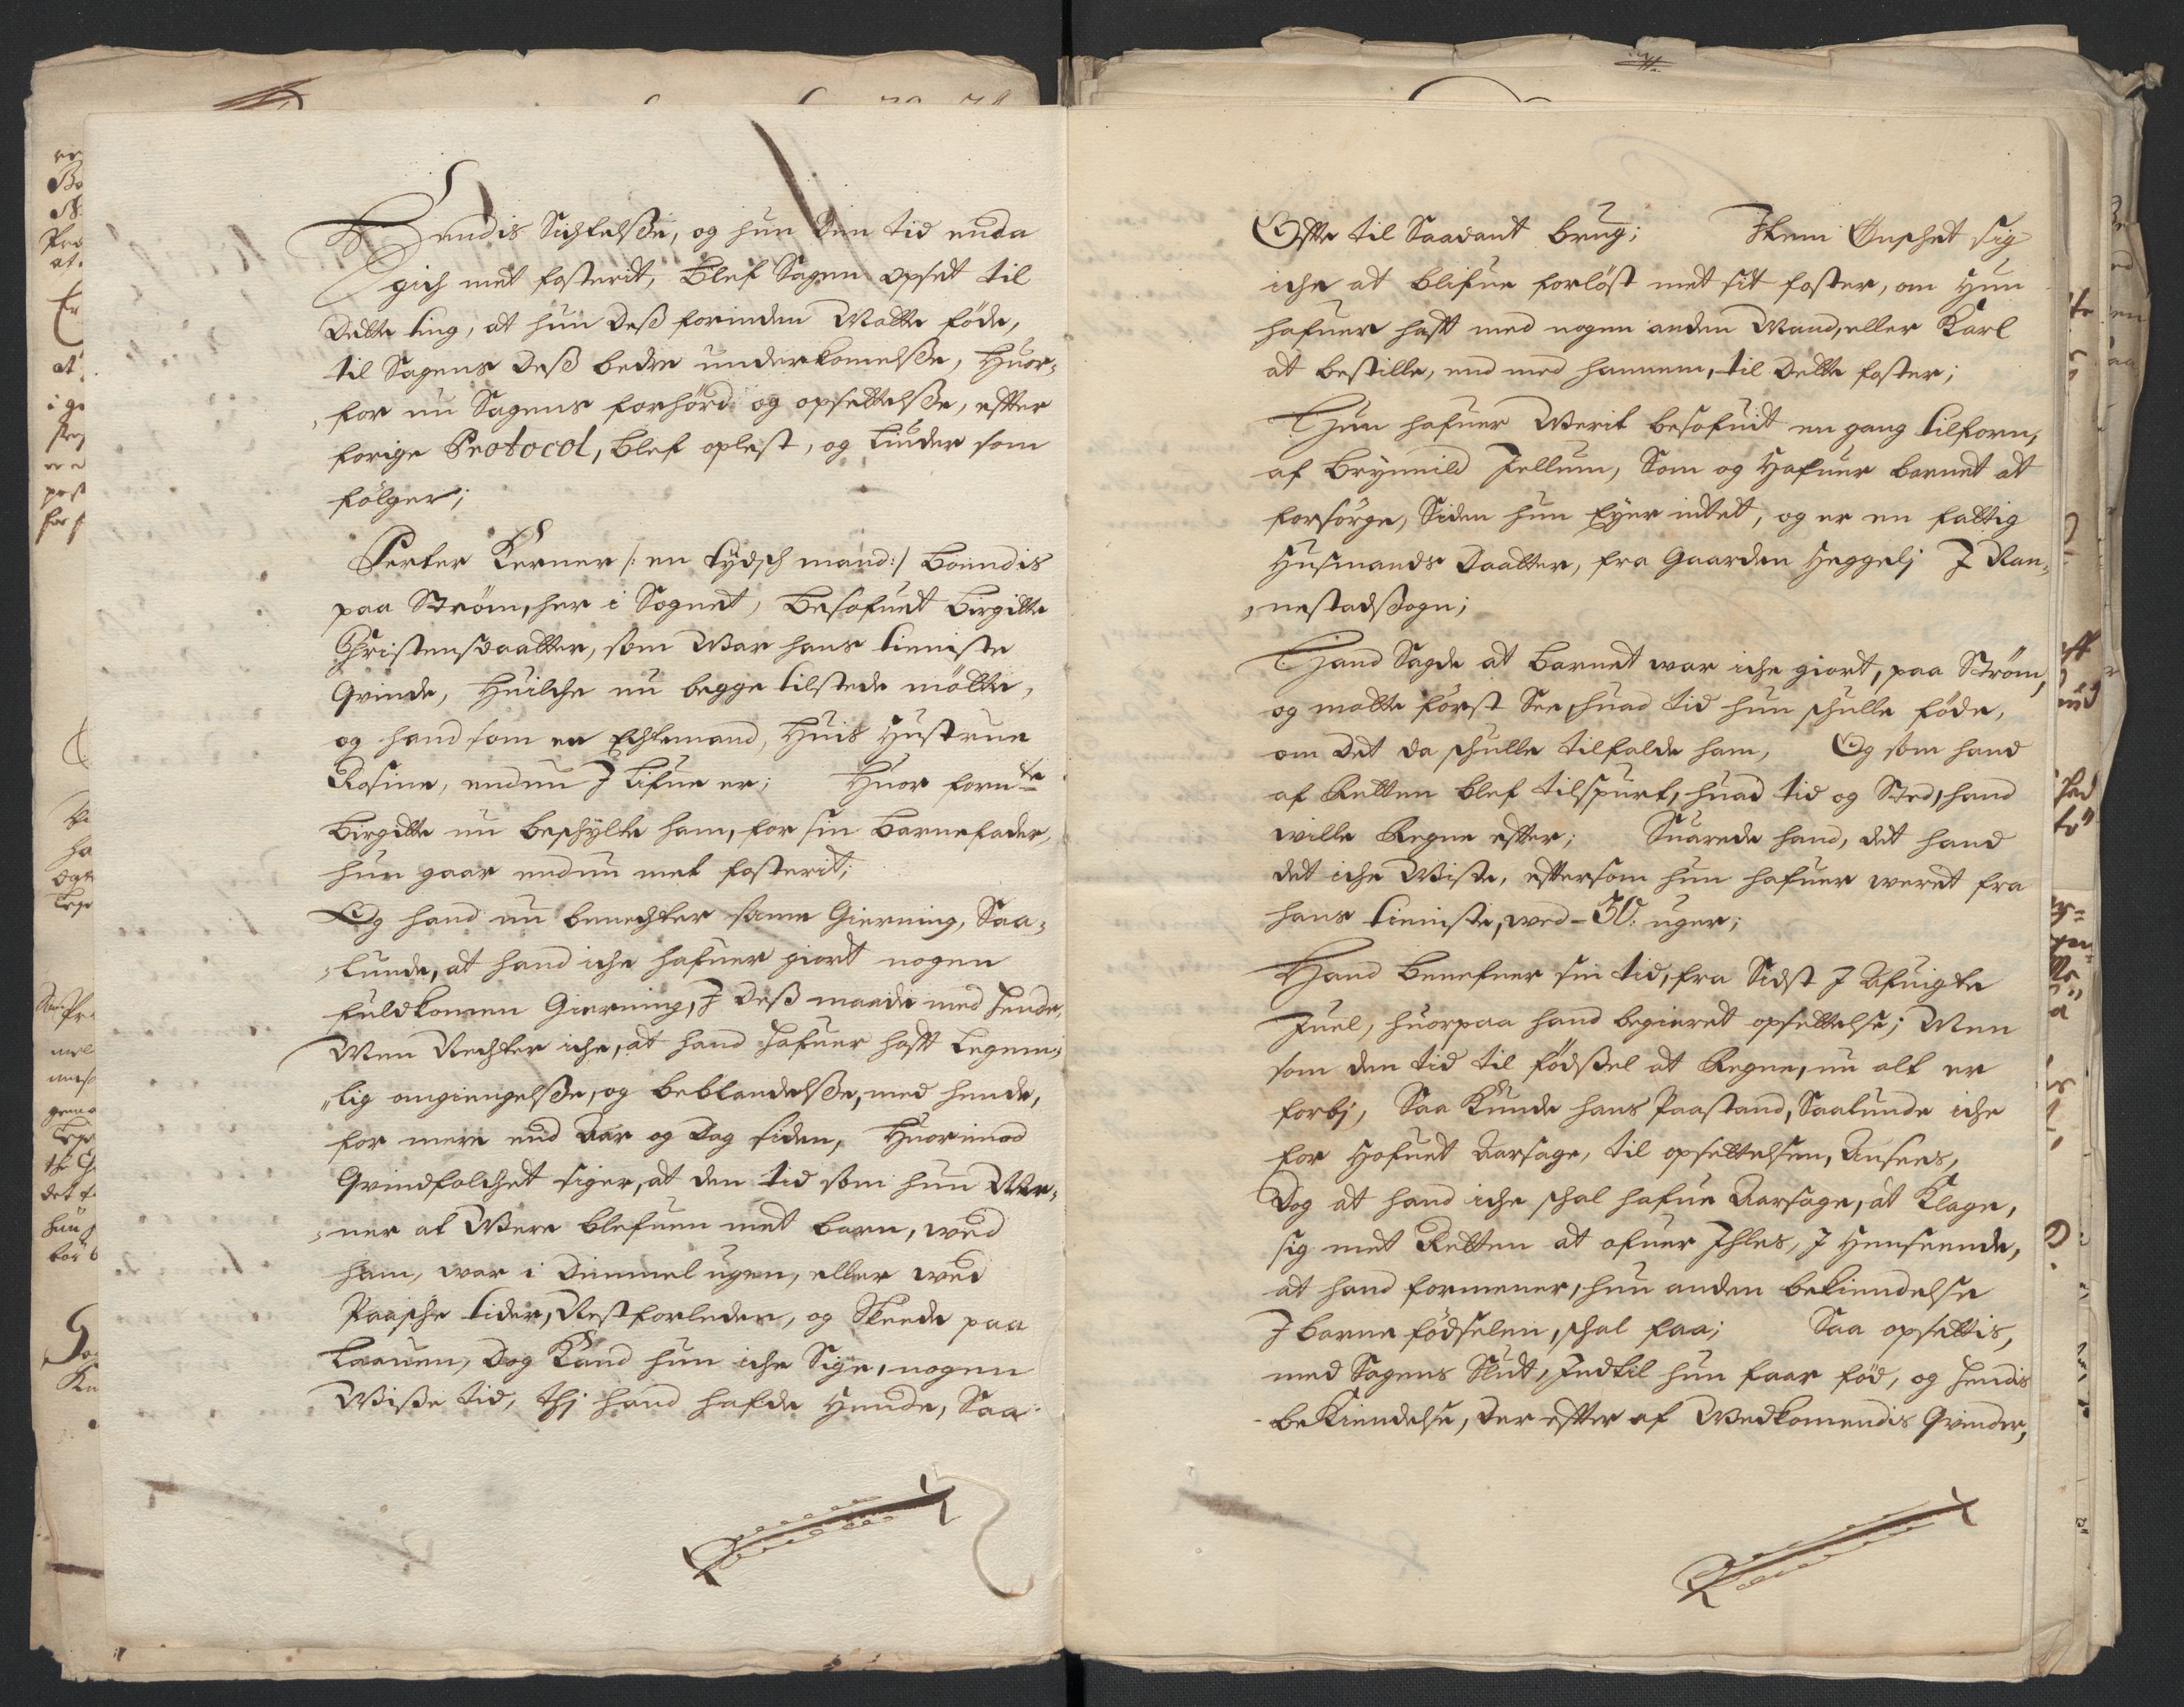 Hendis Sichtelsße, og hun Den tid enda
gich met fosterit, blef Sagen opset til
Dette ting, at hun Deß forinden Motte föde,
til Sagens Deß bedre underkomelsße, Huor-
for nu Sagens forhörd og opsettelsße, effter
forige Protocol, blef oplest, og liuder som
fölger;
Perter Kerner /: en tydsch mand:/ boendis
paa Ström, her i Sognet, besofuet birgitte
Christensdaatter, som War hans tieniste
Qvinde, Huilche nu begge tilstede mötte,
og hand som en Echtemand, Huis Hustrue
Rosine, endnu J lifue er; Huor fornte
birgitte nu beschylte ham, for sin barnefader,
hun gaar endnu met fosterit;
Og hand nu benechter same Gierning, Saa-
lunde, at hand iche hafuer giort nogen
fuldkomen Gierning, J Deß maade med hende,
Men Nechter iche, at hand hafuer hafft legem-
lig omgiengelsße, og beblandelsße, med hende,
for mere end Aar og Dag siden, Huorimod
Qvindfolchet siger, at den tid som hun Me-
ner at Were blefuen met barn, wed
ham, war i Dimmel ugen, eller wed
Paasche tider, Nestforleden, og Skeede paa
Laauen, Dog Kand hun iche Sige, nogen
Wiße tid, thj hand hafde Hende, Saa
Offte til Saadant brug; Item Ønschet sig
iche at blifue forlöst met sit foster, om Hun
hafuer hafft med nogen anden Mand, eller Karl
at bestille, end med hannem, til Dette foster;
Hun hafuer Werit besofuit en gang tilforn,
af Brynnild Jellum, Som og Hafuer barnet at
forsörge, Siden hun Eyer intet, og er en fattig
Husmands Daatter, fra Gaarden Heggelj J Ran-
nestadßogn;
Hand Sagde at barnet war iche giort, paa Ström,
og motte först See, huad tid hun schulle föde,
om Det da schulle tilfalde ham, Og som hand
af Retten blef tilspurt, huad tid og Sted, hand
wille Regne effter; Suarede hand, det hand
det iche Wiste, effersom hun hafuer weret fra
hans tieniste, wed - 30: uger;
Hand benefner sin tid, fra Sidst J Afuigte
Juel, huorpaa hand begieret opsettelse; Men
som den tid til födsßel at Regne, nu alt er
forbj, Saa Kunde hans Paastand, Saalunde iche
for Hofuet Aarsage, til opsettelsen, Ansees,
Dog at hand iche schal hafue Aarsage, at Klage,
sig met Retten at ofuer Ihles, J Henseende,
at hand formener, hun anden bekiendelse
J barne födselen, schal faa; Saa opsettis,
med Sagens Slut, Indtil hun faar föd, og hendis
beKiendelse, Der effter af Wedkomendis Qvinder,